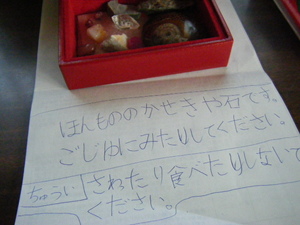 ほんもののかせきや石です。
ごじゆにみたりしてください。
ちゅうい さわたり食べたりしないで
ください。